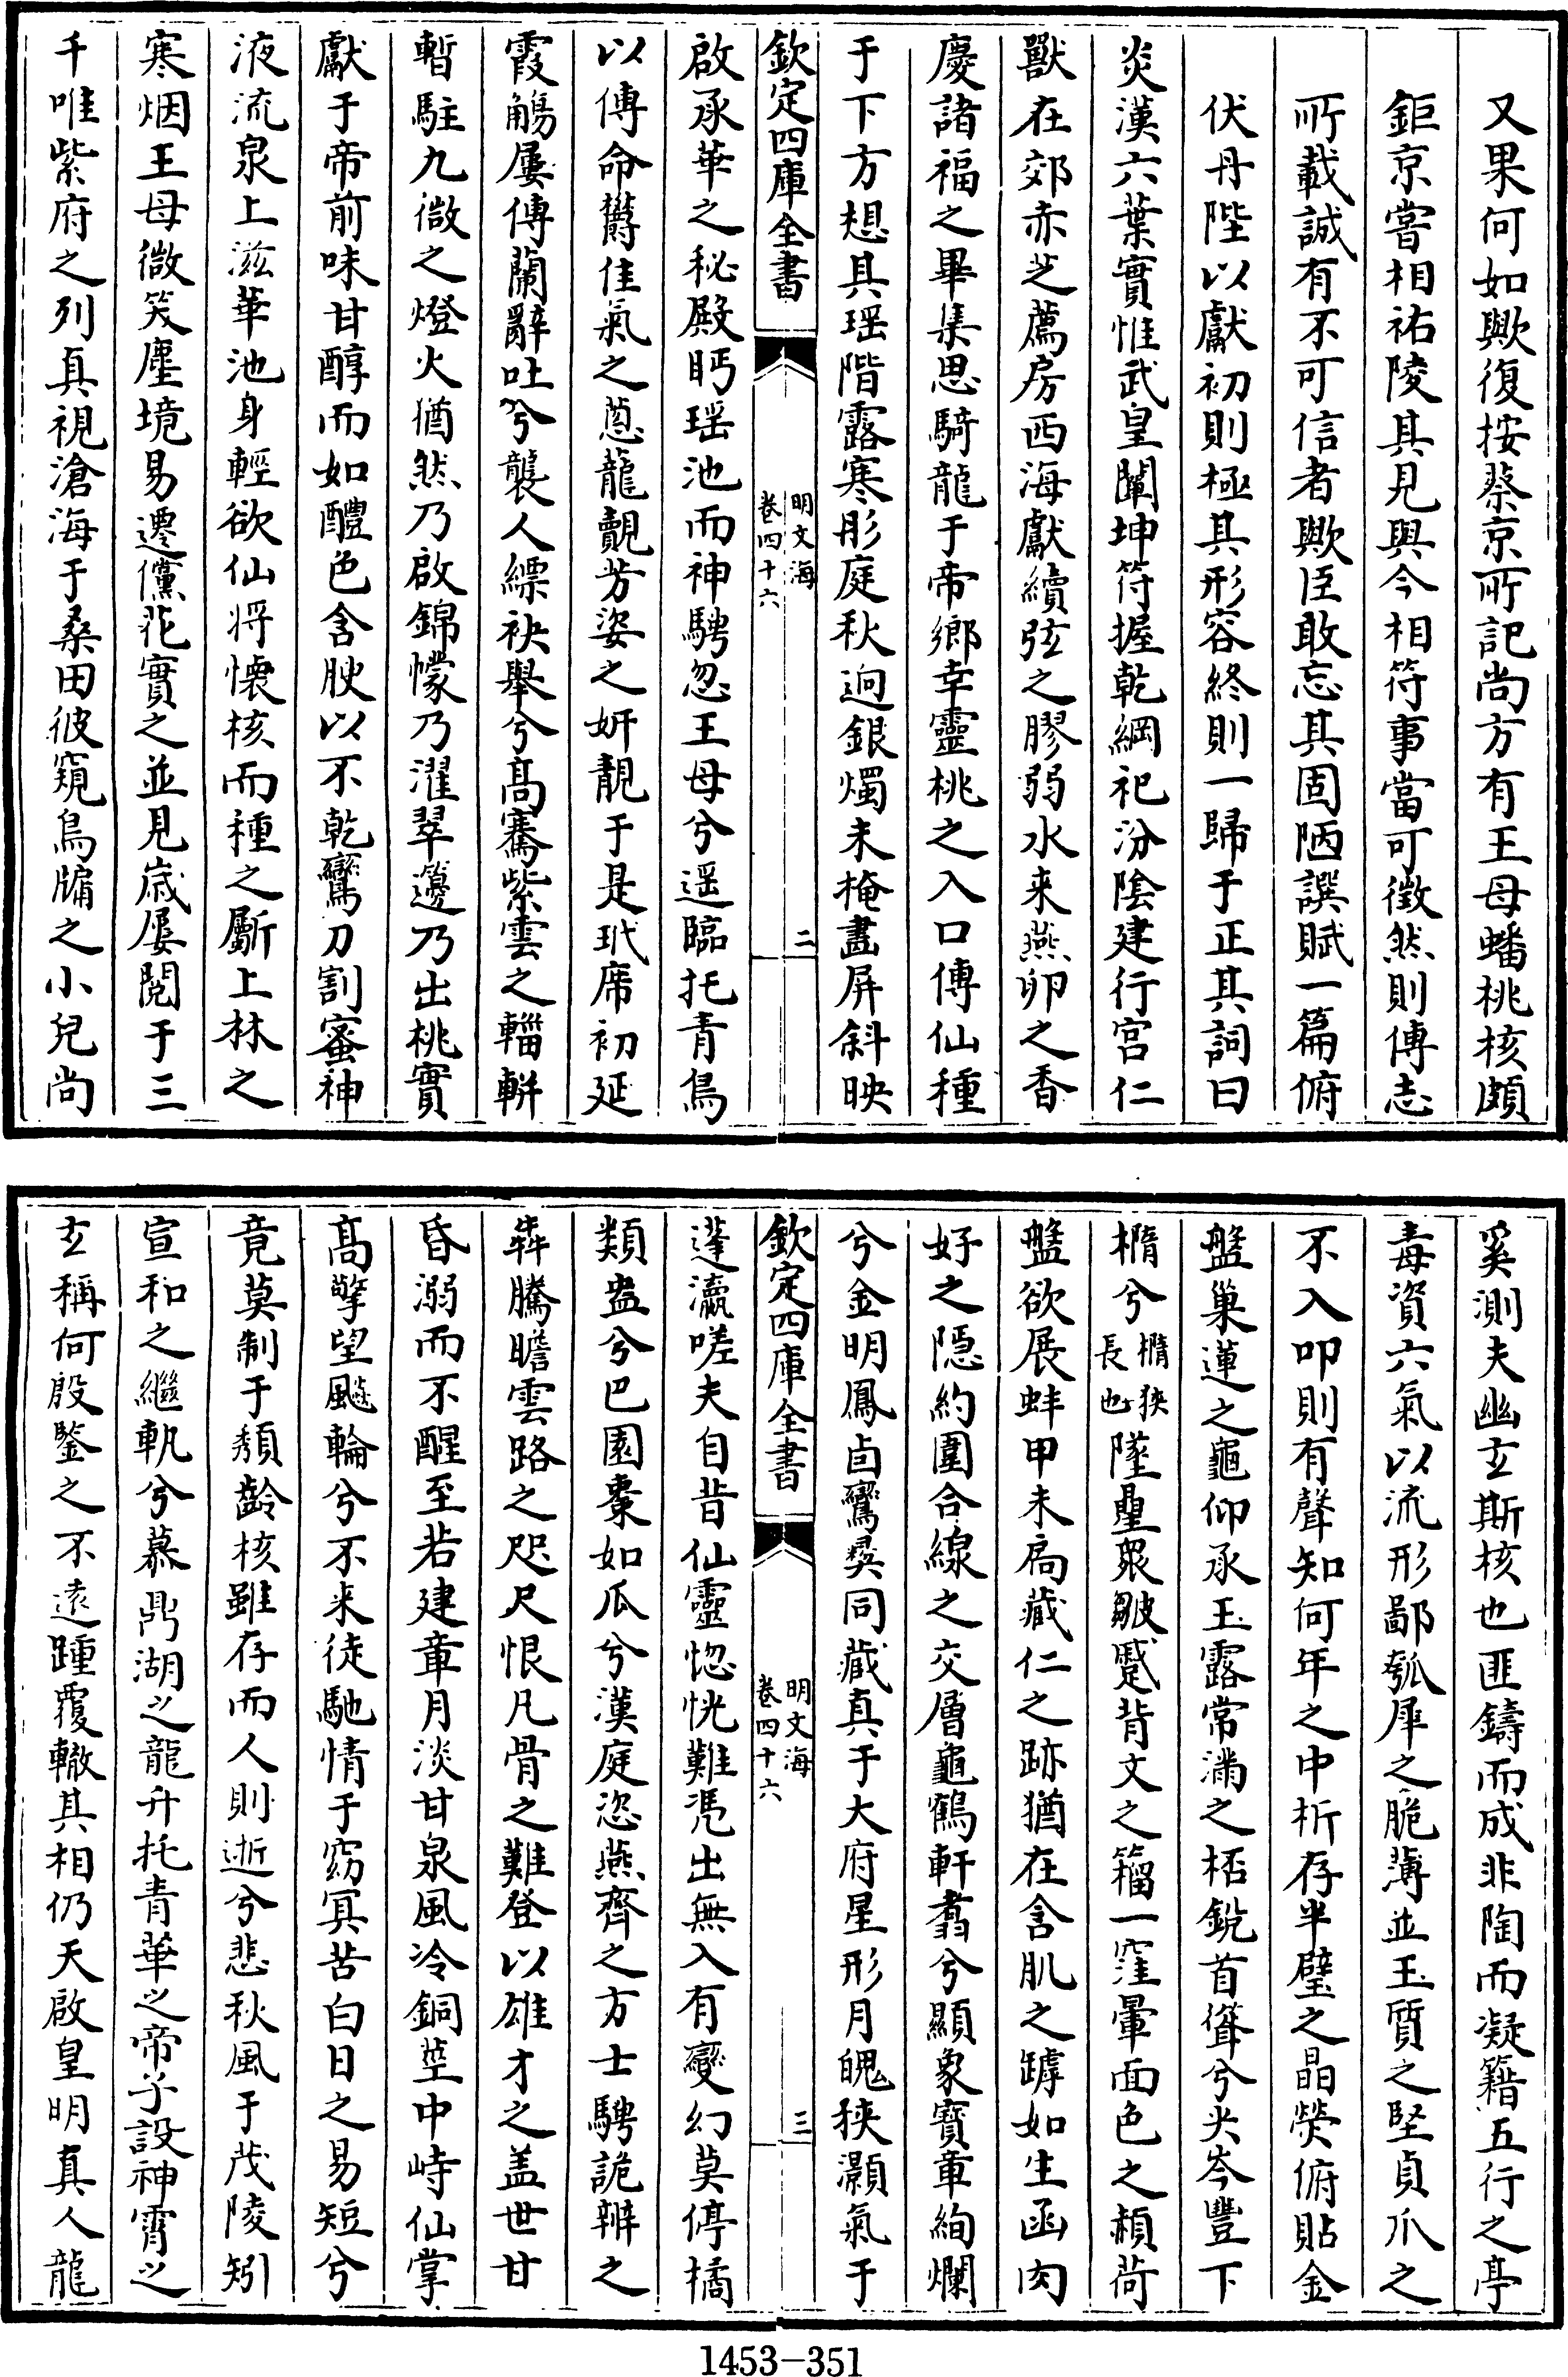 又果何如歟復按蔡京所記尚方有王母蟠桃核頗
鉅京嘗相祐陵其見與今相符事當可徵然則傳志
所載誠有不可信者歟臣敢忘其固陋譔賦一篇俯
伏丹陛以獻初則極其形容終則一歸于正其詞曰
炎漢六葉實惟武皇闡坤符握乾綱祀汾陰建行宫仁
獸在郊赤芝薦房西海獻續弦之膠弱水来燕卵之香
慶諸福之畢集思騎龍于帝鄉幸靈桃之入口傳仙種
于下方想其瑶階露寒彤庭秋迥銀燭未掩畫屏斜映
欽定四庫全書
明文海
卷四十六
二
啟承華之秘殿眄瑶池而神騁忽王母兮遥臨托青鳥
以傳命欝佳氣之葱龍覿芳姿之妍靚于是玳席初延
霞觴屢傳蘭辭吐兮襲人縹袂舉兮髙騫紫雲之輜軿
暫駐九微之燈火猶然乃啟錦幪乃濯翠籩乃出桃實
獻于帝前味甘醇而如醴色含腴以不乾鸞刀割蜜神
液流泉上滋華池身輕欲仙将懐核而種之斸上林之
寒烟王母微笑塵境易遷儻花實之並見嵗屢閲于三
千唯紫府之列真視滄海于桑田彼窺鳥牖之小兒尚
奚測夫幽玄斯核也匪鑄而成非陶而凝籍五行之亭
毒資六氣以流形鄙瓠犀之脆薄並玉質之堅貞爪之
不入叩則有聲知何年之中析存半璧之晶熒俯貼金
盤巢蓮之龜仰承玉露常滿之桮鋭首聳兮尖岑豐下
橢兮橢狹長也墜星衆皺蹙背文之籕一窪暈面色之赬荷
盤欲展蚌甲未扃藏仁之跡猶在含肌之罅如生函肉
好之隠約圍合線之交層龜鶴軒翥兮顯象寳章絢爛
兮金明鳳卣鸞彛同藏真于大府星形月魄挾灝氣于
欽定四庫全書
明文海
卷四十六
三
蓬瀛嗟夫自昔仙靈惚恍難慿出無入有變幻莫停橘
類盎兮巴園棗如瓜兮漢庭恣燕齊之方士騁詭辨之
犇騰瞻雲路之咫尺恨凡骨之難登以雄才之盖世甘
昏溺而不醒至若建章月淡甘泉風冷銅莖中峙仙掌
髙擎望飈輪兮不来徒馳情于窈冥苦白日之易短兮
竟莫制于頽齡核雖存而人則逝兮悲秋風于茂陵矧
宣和之繼軌兮慕鼎湖之龍升托青華之帝子設神霄之
玄稱何殷鑒之不遠踵覆轍其相仍天啟皇明真人龍
1453—351